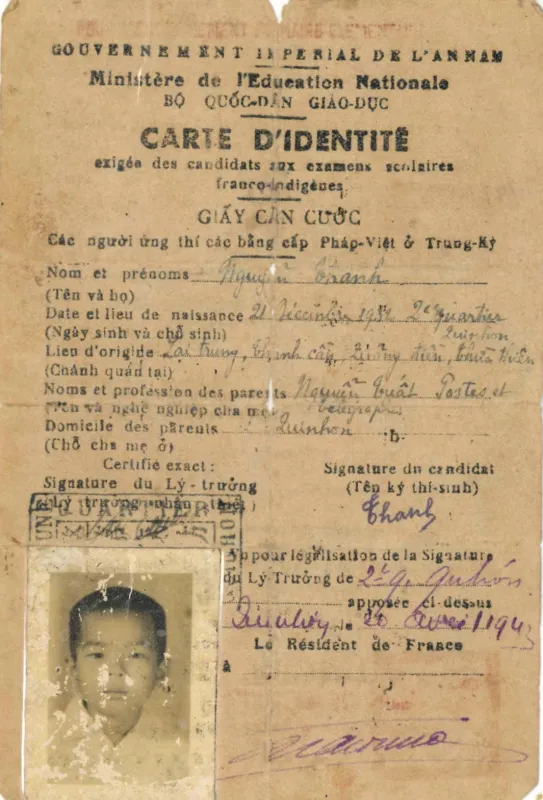 GOUVERNEMENT IMPERIAL DE L'ANNAM
Ministère de l'Education Nationale
BỘ QUỐC-DÂN GIÁO-DỤC
CARTE D'IDENTITÉ
exigée des candidats aux examens scolaires
franco-indigènes
GIẤY CĂN CƯỚC
Các người ứng thí các bằng cấp Pháp-Việt ở Trung-Kỳ
Nom et prénoms Nguyễn Thanh
(Tên và họ)
Date et lieu de naissance 21 Décembre 1932 2e quartier
(Ngày sinh và chỗ sinh) Quinhon
Lieu d'origide Lai Trung, Quảng điền, Thừa Thiên
(Chánh quán tại)
Noms et profession des parents Nguyễn Postes et
(Tên và nghề nghiệp cha mẹ) télégraphes
Domicile des parents Quinhon
(Chỗ cha mẹ ở)
Certifié exact :
Signature du Lý-trưởng
(Lý trưởng nhận thiệt)
Signature du candidat
(Tên ký thí-sinh)
Thanh
QUARTIER
Vu pour légalisation de la Signature
du Lý Trưởng de 2e q. Quinhon
apposée ci-dessus
Quinhon, le 20 Avril 1943
Le Résident de France
à